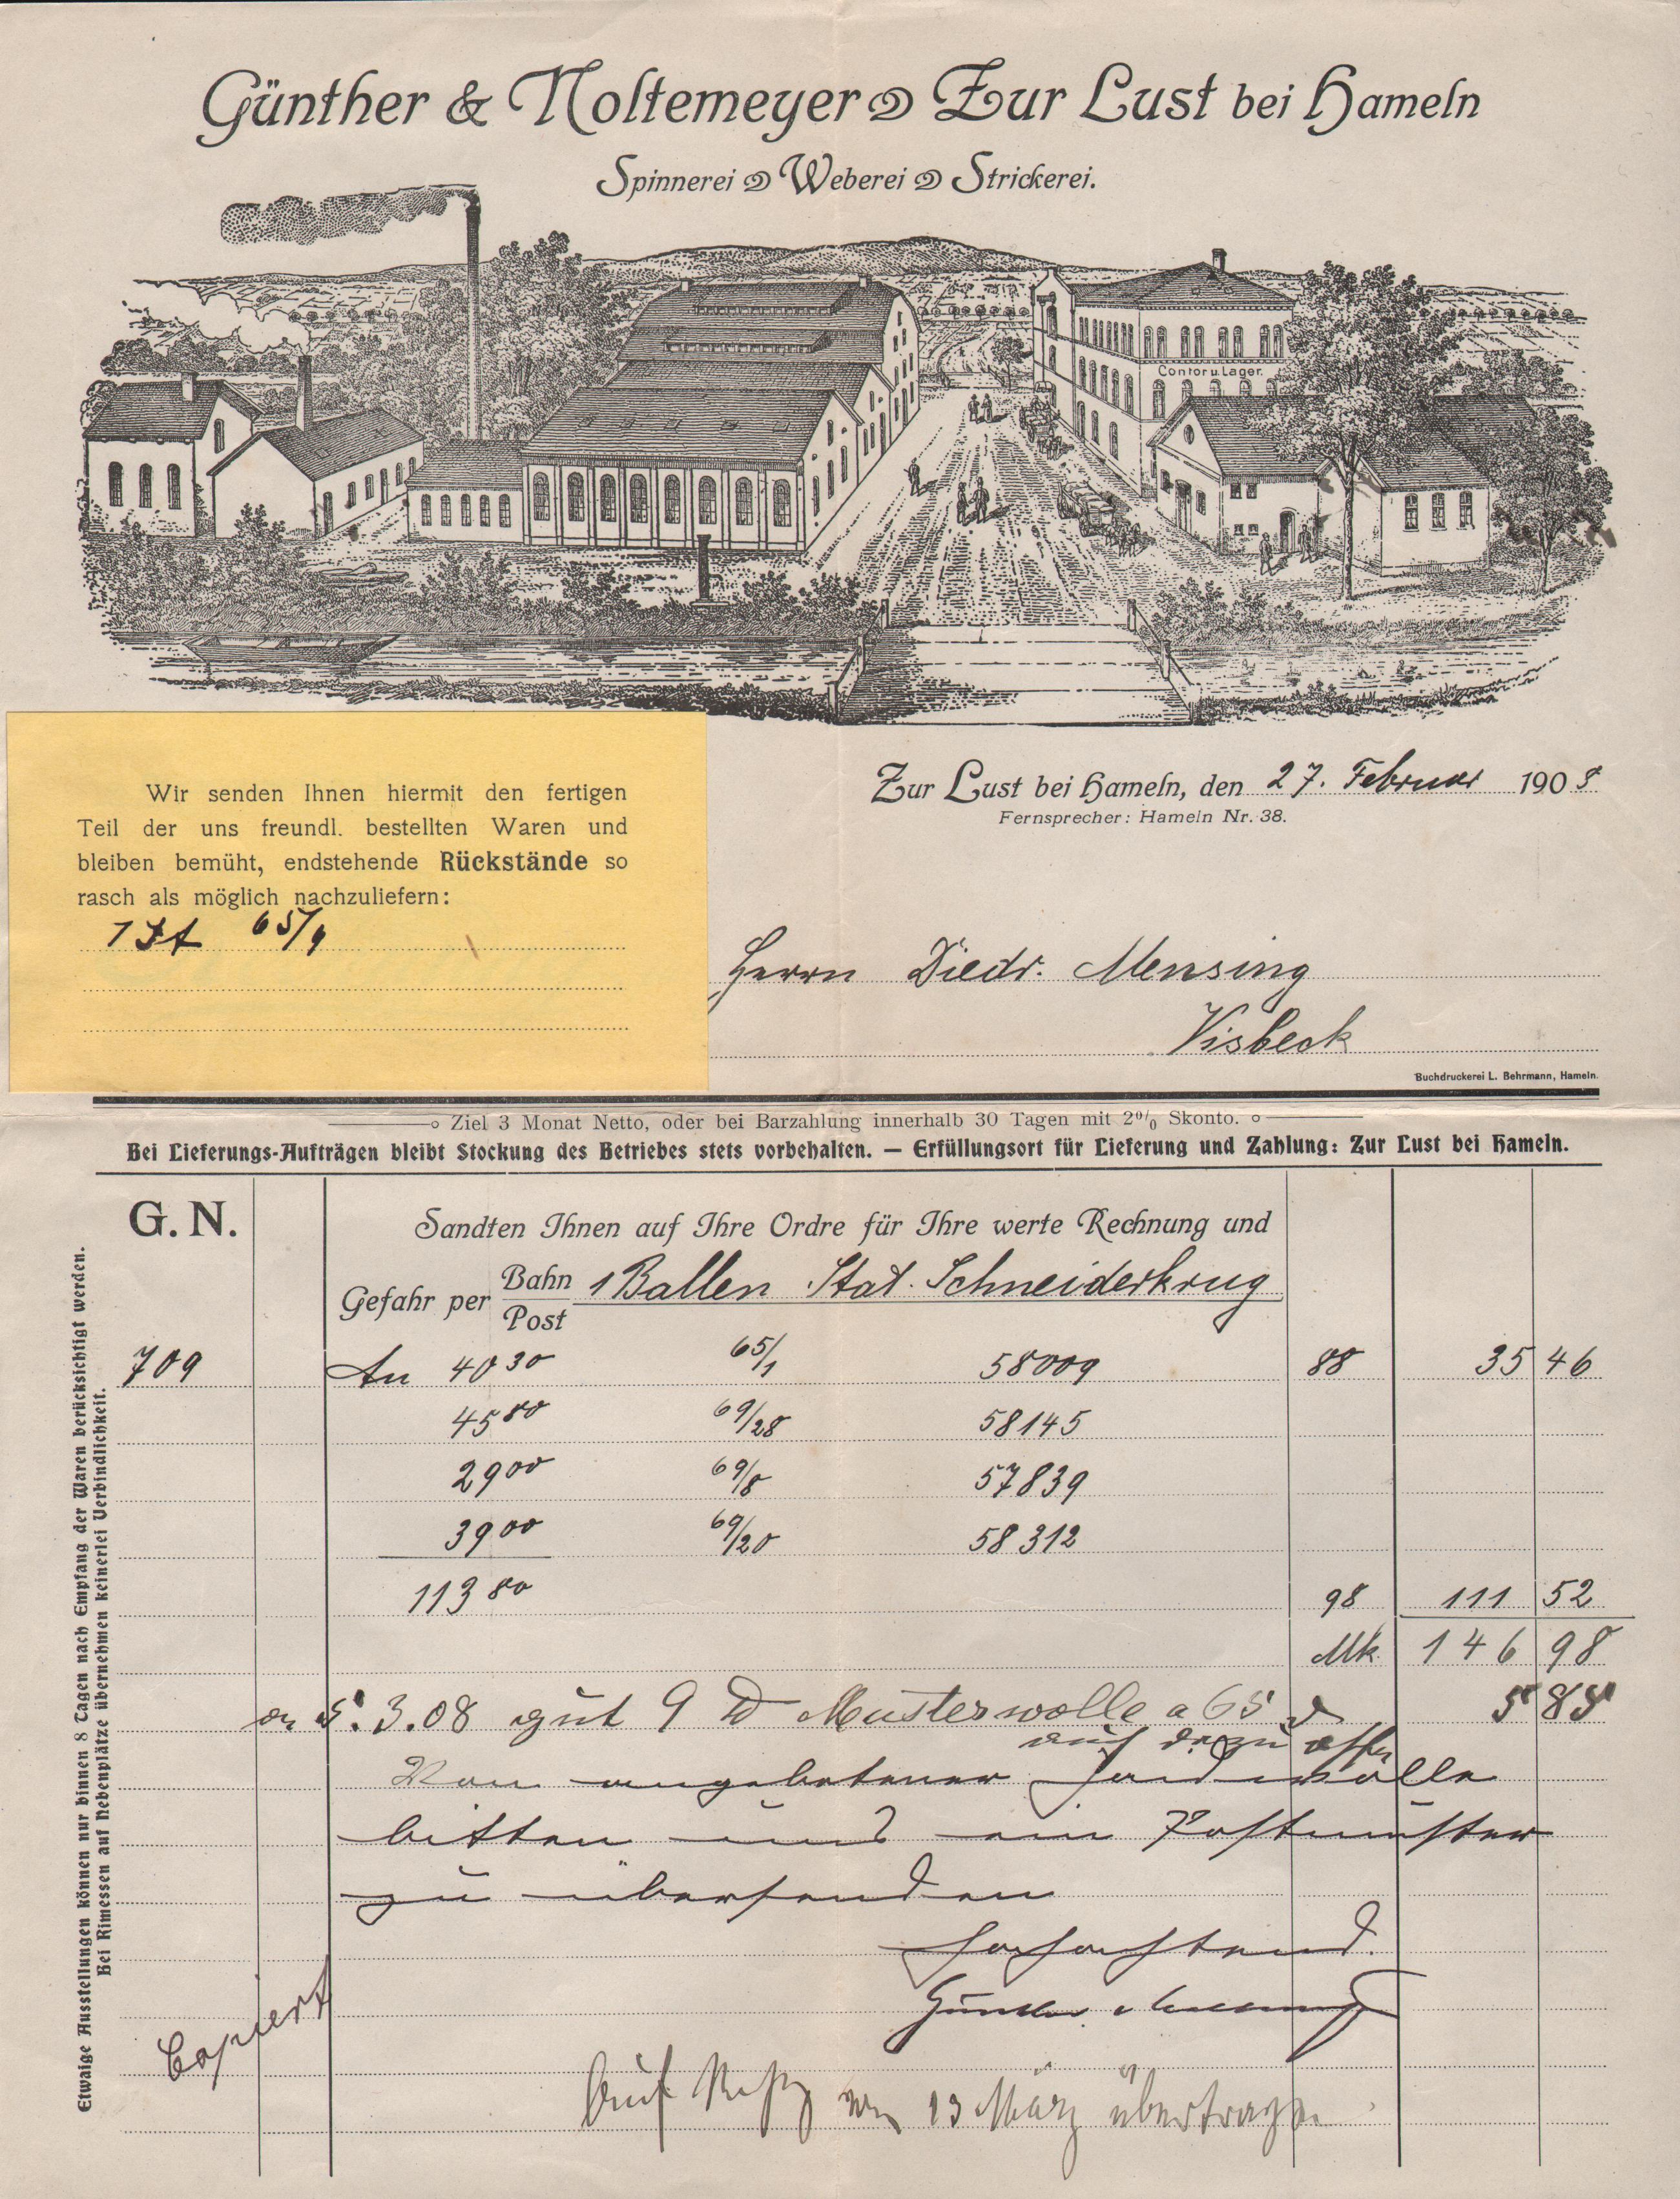 Günther & Noltemeyer Zur Lust bei Hameln
Spinnerei Weberei Strickerei.
Contor u. Lager.
Wir senden Ihnen hiermit den fertigen
Teil der uns freundl. bestellten Waren und
bleiben bemüht, endstehende Rückstände so
rasch als möglich nachzuliefern:
65/9
Zur Lust bei Hameln, den 27. Februar 1908
Fernsprecher: Hameln Nr. 38.
Herrn Diedr. Mensing
Visbeck
Buchdruckerei L. Behrmann, Hameln.
Ziel 3 Monat Netto, oder bei Barzahlung innerhalb 30 Tagen mit 2% Skonto.
Bei Lieferungs-Aufträgen bleibt Stockung des Betriebes stets vorbehalten. — Erfüllungsort für Lieferung und Zahlung: Zur Lust bei Hameln.
G. N.
Sandten Ihnen auf Ihre Ordre für Ihre werte Rechnung und
Gefahr per Bahn Post 1 Ballen Stat. Schneiderkrug
709 An 40 30 65/1 58009 88 35 46
45 80 69/28 58145
29 00 69/8 57839
39 00 69/20 58312
113 80 98 111 52
Mk 146 98
5.3.08 gut 9 ℔ Musterwolle a 65 5 85
Von angebotener Landwolle
bitten uns ein Postmuster
zu übersenden
Hochachtend.
Copiert
Auf vom 13 März übertragen
Etwaige Ausstellungen können nur binnen 8 Tagen nach Empfang der Waren berücksichtigt werden.
Bei Rimessen auf Nebenplätze übernehmen keinerlei Verbindlichkeit.